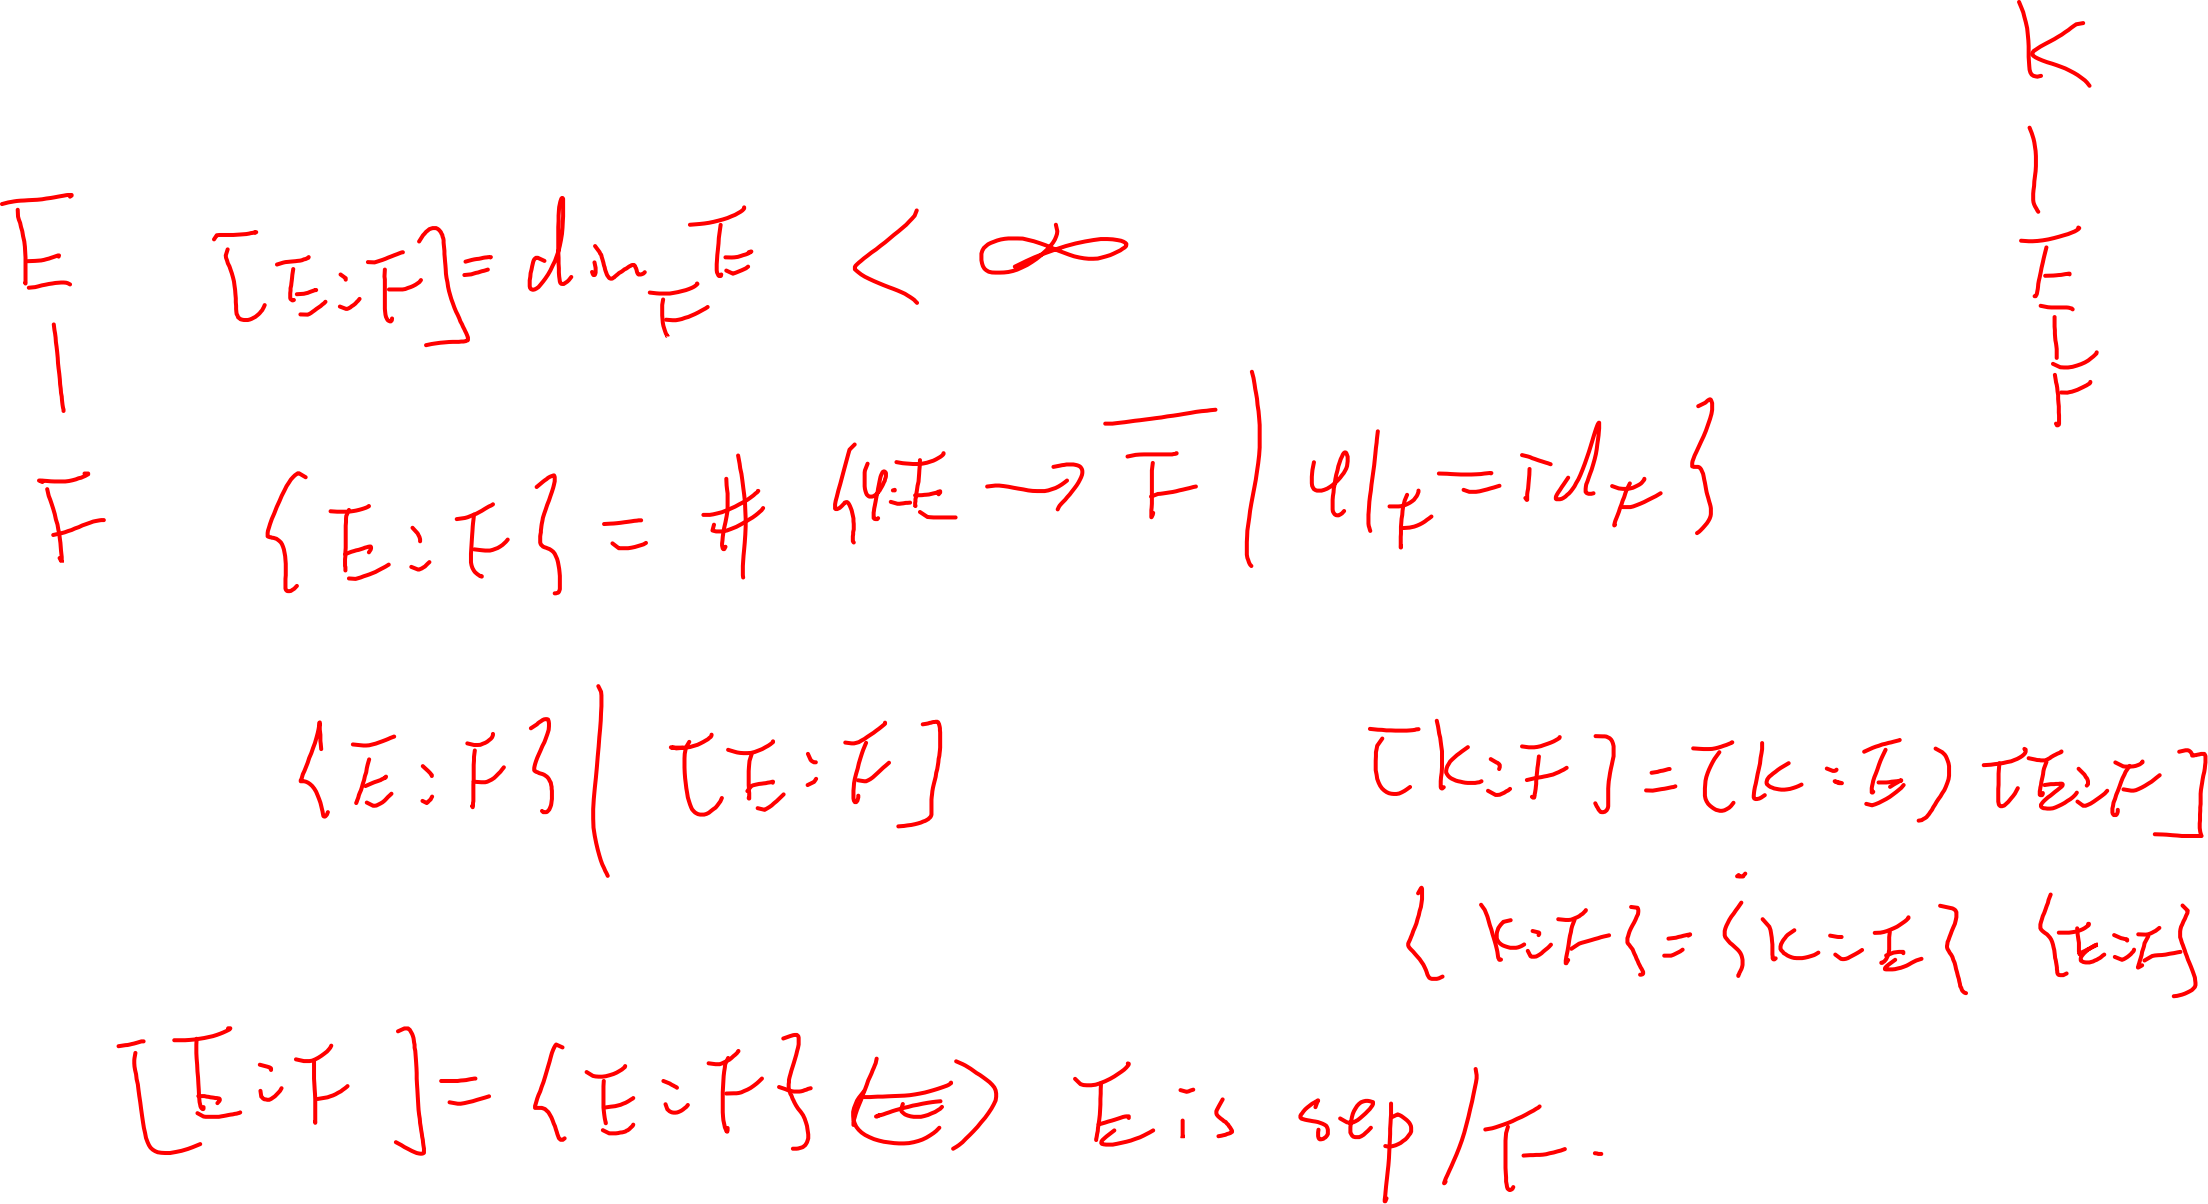 E
|
F
[E:F] = dim_F E < ∞
{E:F} = # {φ:E → F̅ | φ|_F = id_F}
K
|
E
|
F
{E:F} | [E:F]
[K:F] = [K:E] [E:F]
{K:F} = {K:E} {E:F}
[E:F] = {E:F} ⇔ E is sep/F.